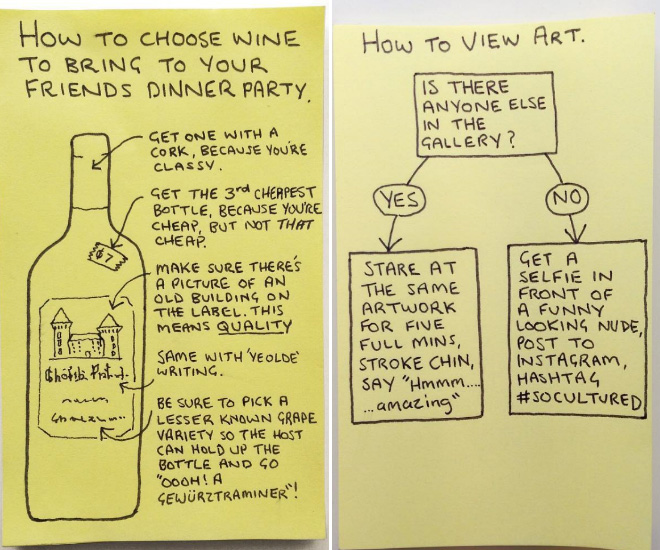 HOW TO CHOOSE WINE
TO BRING TO YOUR
FRIENDS DINNER PARTY.
GET ONE WITH A
CORK, BECAUSE YOU'RE
CLASSY.
GET THE 3rd CHEAPEST
BOTTLE, BECAUSE YOU'RE
CHEAP, BUT NOT THAT
CHEAP.
$7
MAKE SURE THERE'S
A PICTURE OF AN
OLD BUILDING ON
THE LABEL. THIS
MEANS QUALITY
SAME WITH 'YEOLDE'
WRITING.
BE SURE TO PICK A
LESSER KNOWN GRAPE
VARIETY SO THE HOST
CAN HOLD UP THE
BOTTLE AND GO
"OOOH! A
GEWÜRZTRAMINER"!
HOW TO VIEW ART.
IS THERE
ANYONE ELSE
IN THE
GALLERY?
YES
NO
STARE AT
THE SAME
ARTWORK
FOR FIVE
FULL MINS,
STROKE CHIN,
SAY "Hmmm....
...amazing"
GET A
SELFIE IN
FRONT OF
A FUNNY
LOOKING NUDE,
POST TO
INSTAGRAM,
HASHTAG
#SOCULTURED